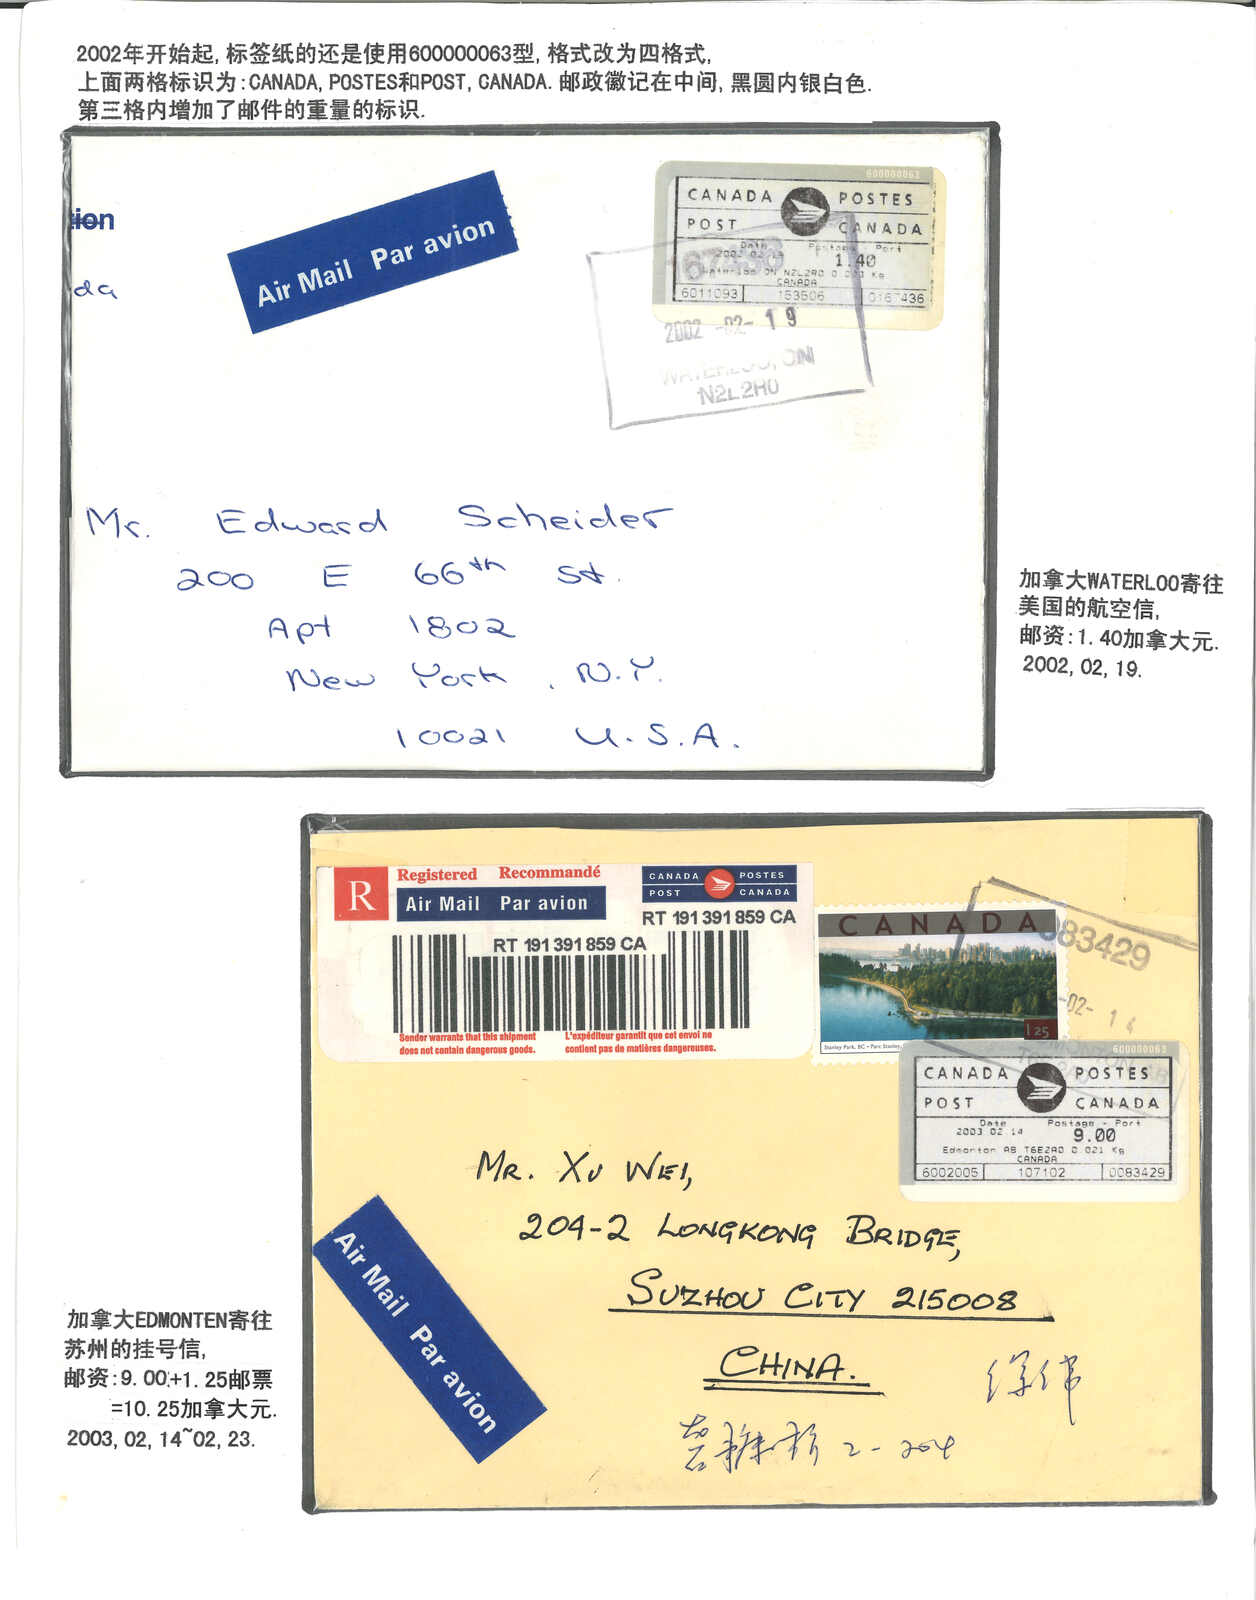 2002年开始起,标签纸的还是使用600000063型,格式改为四格式,
上面两格标识为:CANADA,POSTES和POST,CANADA.邮政徽记在中间,黑圆内银白色.
第三格内增加了邮件的重量的标识.
tion
da
Air Mail Par avion
600000063
CANADA POSTES
POST CANADA
Date Postage - Port
2002 02 19 1.40
Waterloo ON N2L2R0 Kg
CANADA
6011093 153506 0167436
167436
2002 -02- 19
WATERLOO, ON
N2L2R0
Mr. Edward Scheider
200 E 66th St.
Apt 1802
New York, N.Y.
10021 U.S.A.
加拿大WATERLOO寄往
美国的航空信,
邮资:1.40加拿大元.
2002,02,19.
R
Registered Recommandé
Air Mail Par avion
CANADA POSTES
POST CANADA
RT 191 391 859 CA
RT 191 391 859 CA
Sender warrants that this shipment
does not contain dangerous goods.
L'expéditeur garantit que cet envoi ne
contient pas de matières dangereuses.
CANADA
1 25
Stanley Park, BC • Parc Stanley,
0083429
-02- 14
600000063
CANADA POSTES
POST CANADA
Date Postage - Port
2003 02 14 9.00
Edmonton AB T6E2A0 0.021 Kg
CANADA
6002005 107102 0083429
MR. XU WEI,
204-2 LONGKONG BRIDGE,
SUZHOU CITY 215008
CHINA.
2-204
Air Mail Par avion
加拿大EDMONTEN寄往
苏州的挂号信,
邮资:9.00+1.25邮票
=10.25加拿大元.
2003,02,14~02,23.